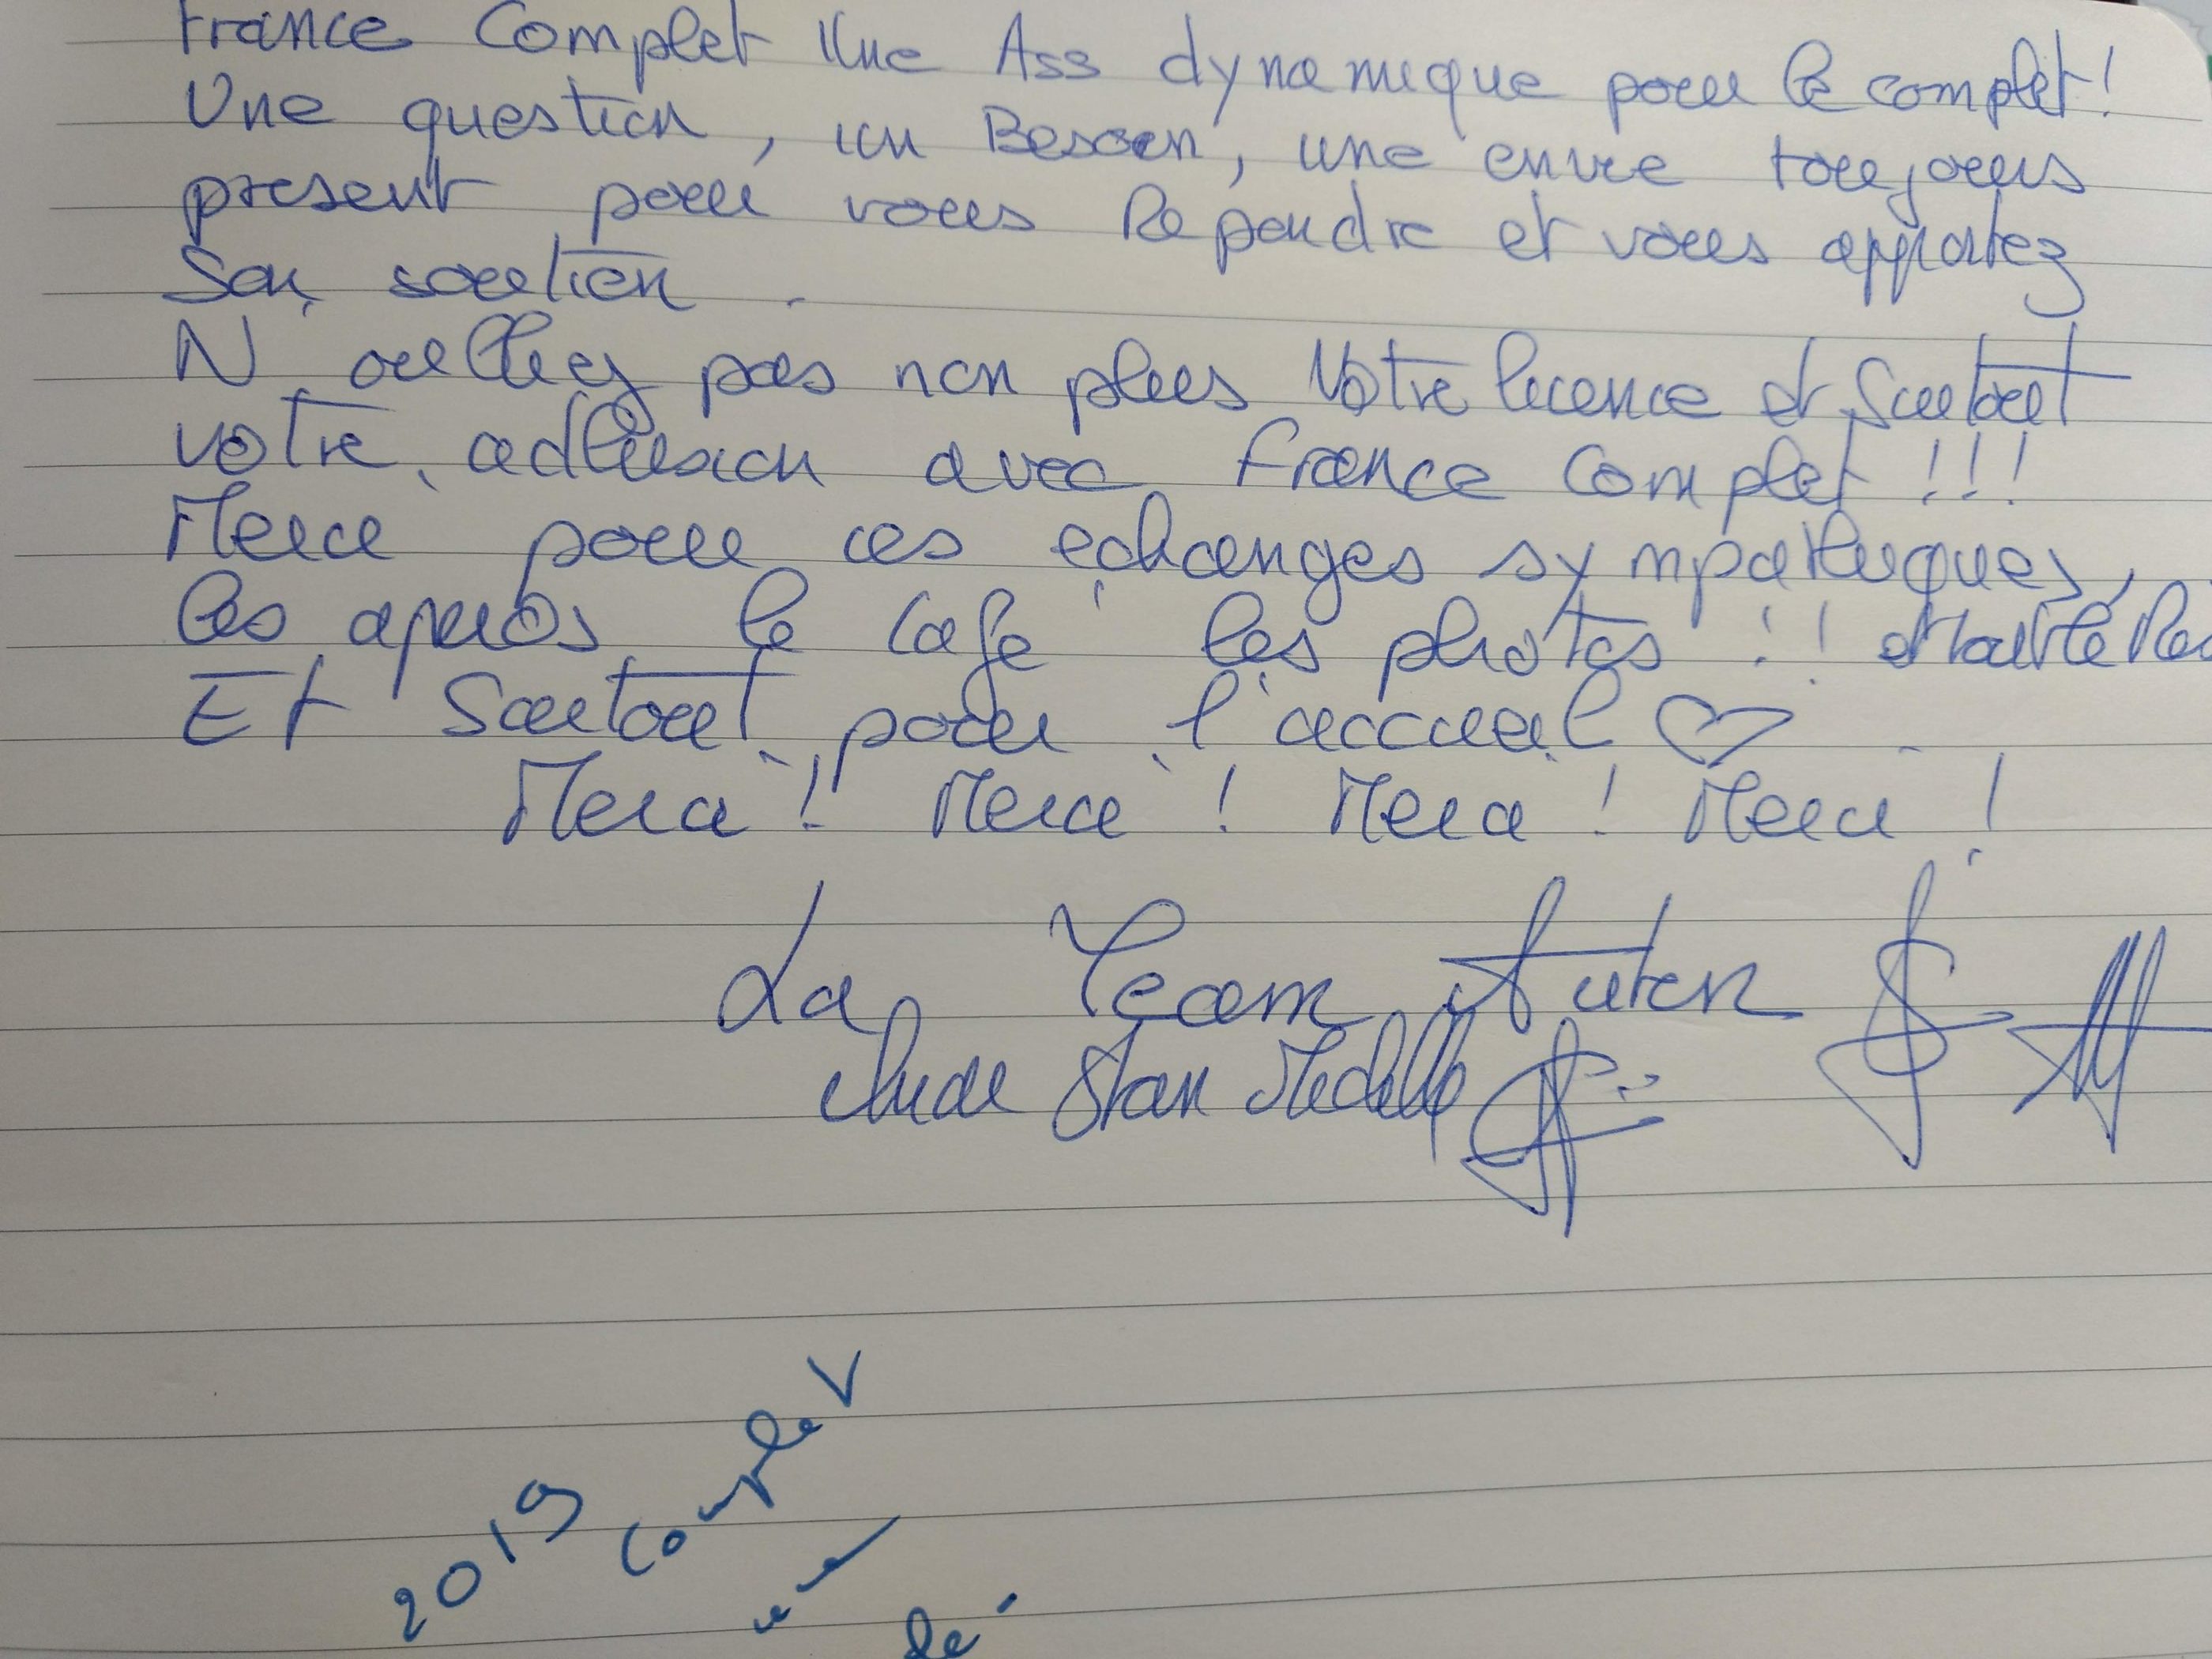 France Complet Une Ass dynamique pour le complet!
Une question, un Besoin, une envie toujours
present pour vous Repondre et vous apportez
Son soutien.
N oulliez pas non plus Votre licence et Surtout
votre adhésion avec France Complet !!!
Merci pour ces echanges sympathiques,
les apéros le Café les photos !!
Et Surtout pour l'accueil ♡
Merci! Merci! Merci! Merci!
La Team
Aude Stan
2019 Complet